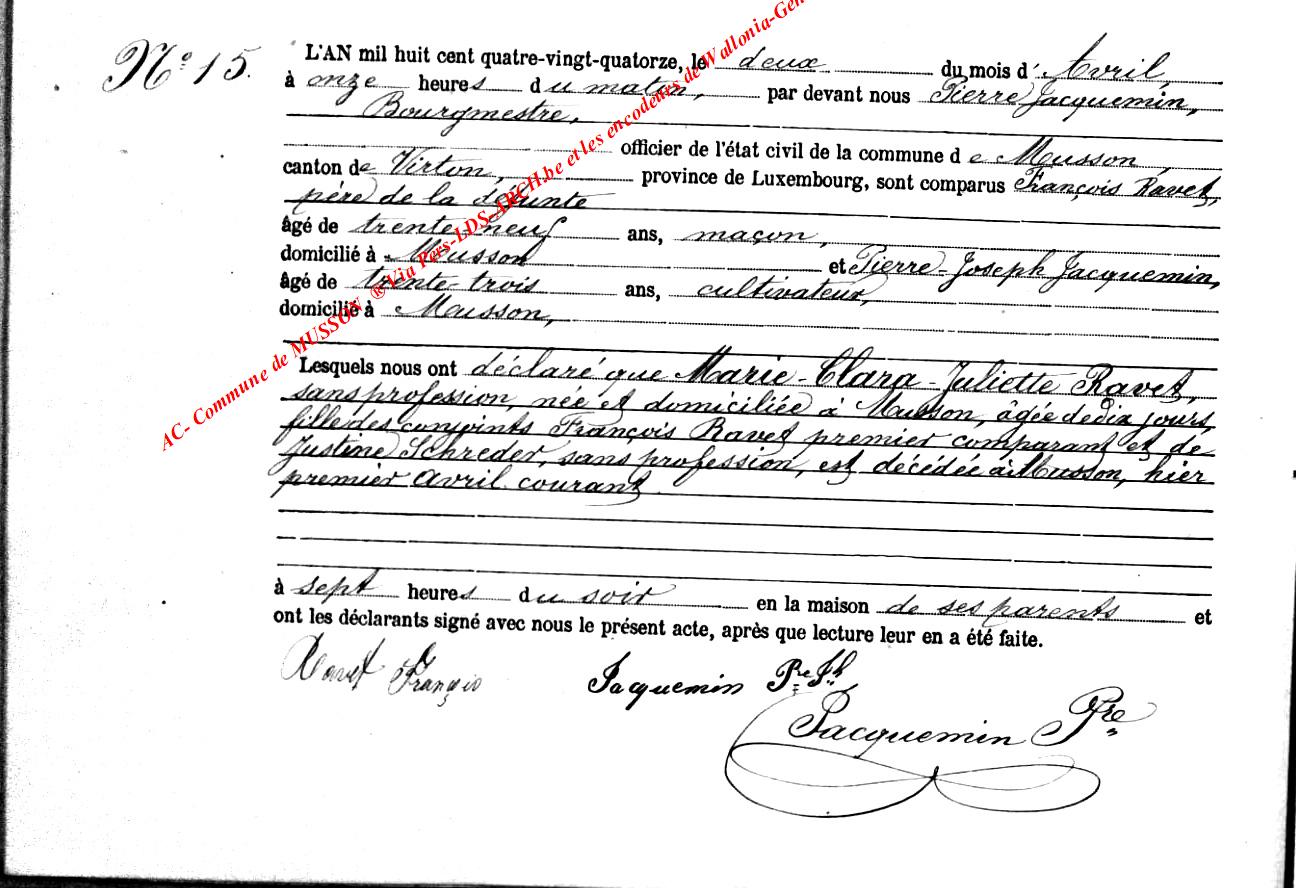 N° 15.
L'AN mil huit cent quatre-vingt-quatorze, le deux du mois d' Avril,
à onze heures du matin, par devant nous Pierre Jacquemin,
Bourgmestre,
officier de l'état civil de la commune de Musson
canton de Virton, province de Luxembourg, sont comparus François Ravet,
père de la défunte
âgé de trente neuf ans, maçon,
domicilié à Musson et Pierre-Joseph Jacquemin,
âgé de trente-trois ans, cultivateur,
domicilié à Musson,
Lesquels nous ont déclaré que Marie-Clara-Juliette Ravet,
sans profession, née et domiciliée à Musson, âgée de dix jours,
fille des conjoints François Ravet premier comparant et de
Justine Schreder, sans profession, est décédée à Musson, hier
premier avril courant
à sept heures du soir en la maison de ses parents et
ont les déclarants signé avec nous le présent acte, après que lecture leur en a été faite.
Ravet François Jacquemin Pre Jh
Jacquemin Pre
AC- Commune de MUSSON ® Via Pers-LDS-ARCH.be et les encodeurs de Wallonia-Gen